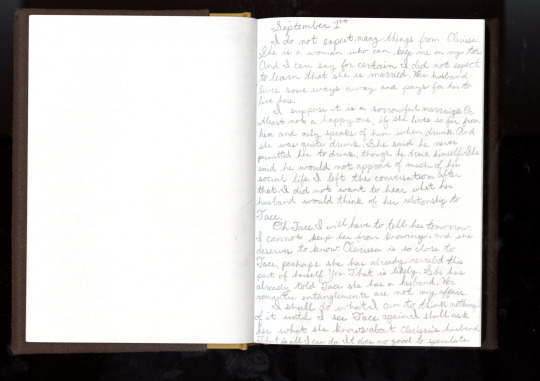 September 1st
I do not expect many things from Clarissa.
She is a woman who can keep me on my toes.
And I can say for certain I did not expect
to learn that she is married. Her husband
lives some ways away and pays for her to
live here.
I suppose it is a sorrowful marriage. Or
atleast not a happy one, if she lives so far from
him and only speaks of him when drunk. And
she was quite drunk. She said he never
permitted her to drink, though he drank himself. She
said he would not approve of much of her
social life. I left the conversation after
that. I did not want to hear what her
husband would think of her relationship to
Tace.
Oh Tace. I will have to tell her tomorrow.
I cannot keep her from knowing, and she
deserves to know. Clarissa is so close to
Tace, perhaps she has already revealed this
part of herself. Yes. That is likely. She has
already told Tace she has a husband. Her
romantic entanglements are not my affair.
I shall do what I can to think nothing
of it until I see Tace again. I shall ask
her what she knows about Clarissa's husband.
That is all I can do. It does no good to speculate